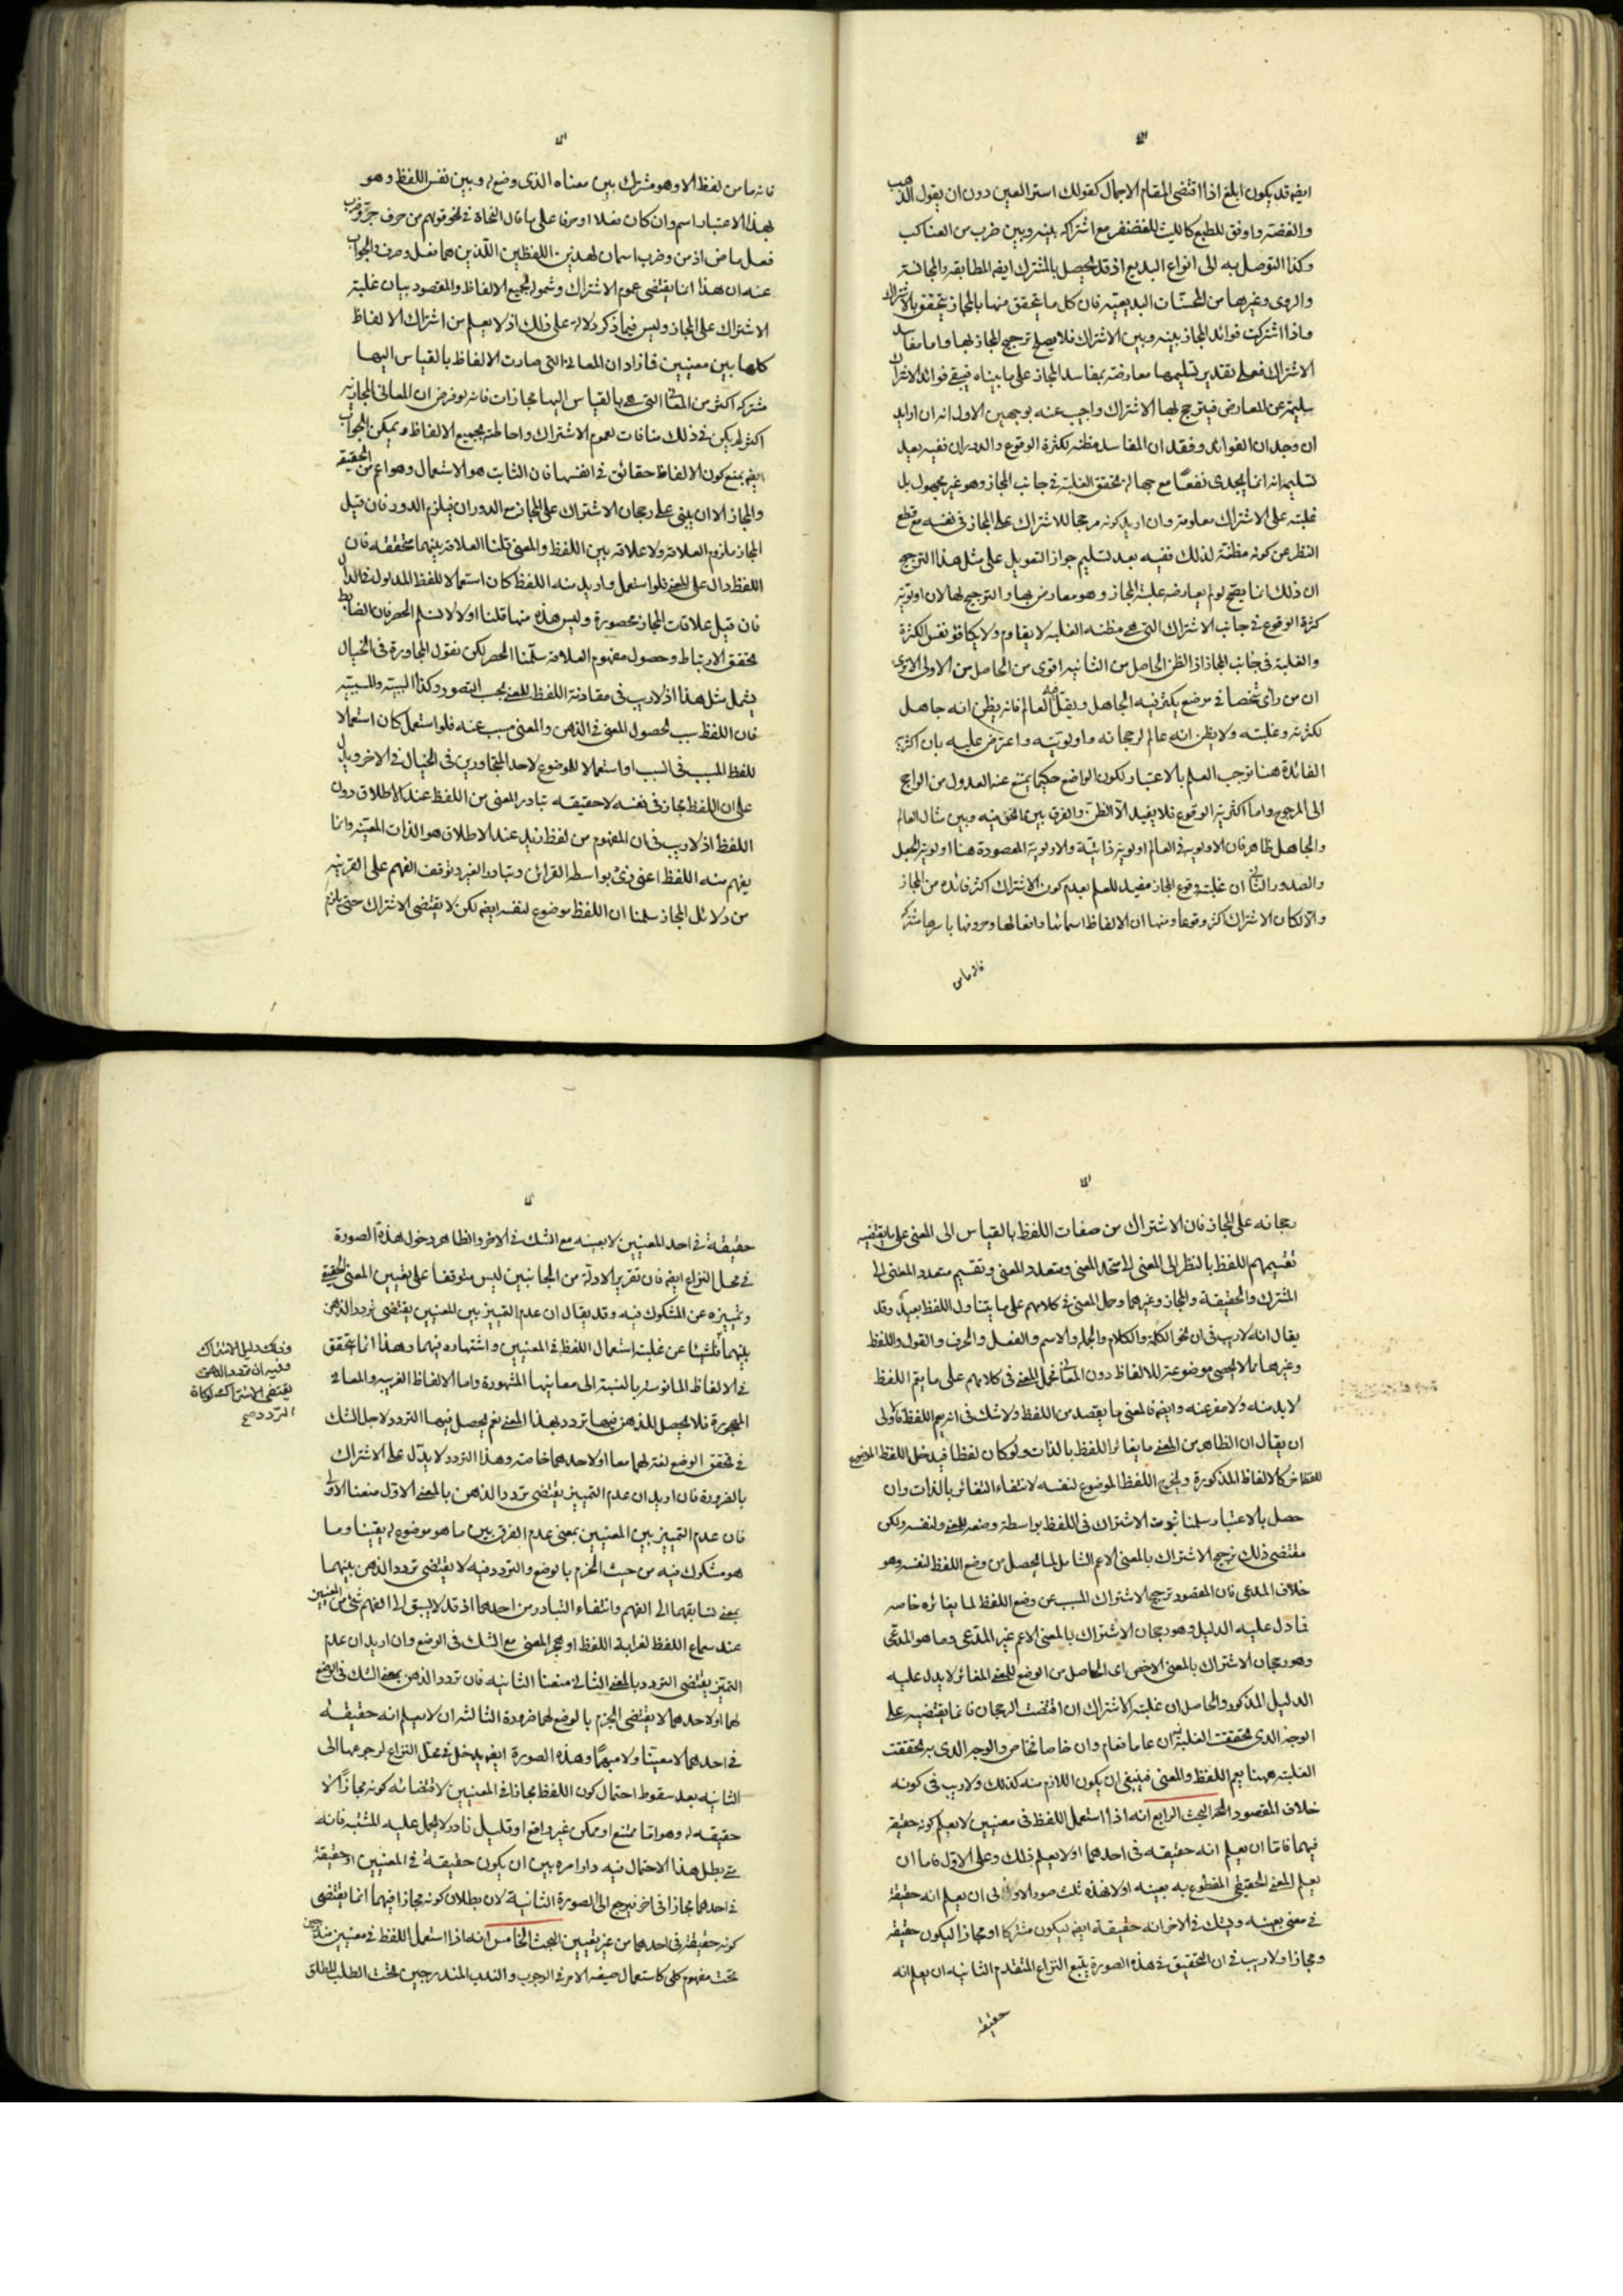 ايضا قد يكون ابلغ اذا اقتضى المقام الاجمال كقولك استر العين دون ان يقول الذهب
والفضة واوفق للطبع كالليث للغضنفر مع اشتراكه بينه وبين ضرب من العناكب
وكذا التوصل به الى انواع البديع اذ قد يحصل بالمشترك ايضا المطابقة والمجانسة
والروى وغيرها من المحسنات البديعية فان كل ما يتحقق منها بالمجاز يتحقق بالاشتراك
واذا اشتركت فوائد المجاز بينه وبين الاشتراك فلا يصلح ترجيح المجاز بها واما مفاسد
الاشتراك فعلى تقدير تسليمها معارضة بمفاسد المجاز على ما بيناه فيبقى فوائد الاشتراك
سليمة عن المعارض فيترجح لها الاشتراك واجيب عنه بوجهين الاول انه ان اريد
ان وجدان الفوائد وفقدان المفاسد مظنة لكثرة الوقوع والدوران ففيه بعد
تسليمه انه انما يجدى نفعًا مع جهالة تحقق الغلبة في جانب المجاز وهو غير مجهول بل
غلبته على الاشتراك معلومة وان اريد كونه مرجحا للاشتراك على المجاز في نفسه مع قطع
النظر عن كونه مظنة لذلك ففيه بعد تسليم جواز التعويل على مثل هذا الترجيح
ان ذلك انما يصح لو لم يعارضه غلبة المجاز وهو معارض بها والترجيح لها لان اولوية
كثرة الوقوع في جانب الاشتراك التي هي مظنة الغلبة لا يقاوم ولا يكافؤ نفس الكثرة
والغلبة في جانب المجاز اذ الظن الحاصل من الثانية اقوى من الحاصل من الاولى الا ترى
ان من رأى شخصا في موضع يكثر فيه الجاهل ويقل العالم فانه يظن انه جاهل
لكثرته وغلبته ولا يظن انه عالم لرجحانه واولويته واعترض عليه بان اكثرية
الفائدة هنا توجب العلم بالاعتبار لكون الواضع حكيما يمتنع عنه العدول من الراجح
الى المرجوح واما اكثرية الوقوع فلا يفيد الا الظن والفرق بين ما نحن فيه وبين مثال العالم
والجاهل ظاهر فان الاولوية في العالم اولوية ذاتية والاولوية المقصودة هنا اولوية الجعل
والصدور الثاني ان غلبة وقوع المجاز مفيد للعلم بعدم كون الاشتراك اكثر فائدة من المجاز
والا لكان الاشتراك اكثر وقوعا ومنها ان الالفاظ اسمائها وافعالها وحروفها باسرها مشتركة
فانه ما من
فانه ما من لفظ الا وهو مشترك بين معناه الذى وضع له وبين نفس اللفظ وهو
بهذا الاعتبار اسم وان كان فعلا او حرفا على ما قال النحاة في نحو قولهم من حرف جر وضرب
فعل ماض اذ من وضرب اسمان لهذين اللفظين اللذين هما فعل وحرف والجواب
عنه ان هذا انما يقتضى عموم الاشتراك وشموله لجميع الالفاظ والمقصود بيان غلبة
الاشتراك على المجاز وليس فيما ذكر دلالة على ذلك اذ لا يعلم من اشتراك الالفاظ
كلها بين معنيين فازاد ان المعاني التى صارت الالفاظ بالقياس اليها
مشتركة اكثر من المعاني التى هي بالقياس اليها مجازات فانه لو فرض ان المعانى المجازية
اكثر لم يكن في ذلك منافات لعموم الاشتراك واحاطته بجميع الالفاظ ويمكن الجواب
ايضا بمنع كون الالفاظ حقائق في انفسها فان الثابت هو الاستعمال وهو اعم من الحقيقة
والمجاز الا ان يبنى على رجحان الاشتراك على المجاز مع الدوران فيلزم الدور فان قيل
المجاز ملزوم العلاقة ولا علاقة بين اللفظ والمعنى قلنا العلاقة بينهما متحققة فان
اللفظ دال على المعنى فلو استعمل واريد منه اللفظ كان استعمالا للفظ المدلول في الدال
فان قيل علاقات المجاز محصورة وليس هذه منها قلنا اولا لا نسلم الحصر فان الضابط
تحقق الارتباط وحصول مفهوم العلاقة سلمنا الحصر لكن نقول المجاورة في الخيال
يشمل مثل هذا اذ لا ريب في مقارنة اللفظ للمعنى بحسب التصور وكذا السببية والمسببية
فان اللفظ سبب لحصول المعنى في الذهن والمعنى مسبب عنه فلو استعمل كان استعمالا
للفظ المسبب في السبب او استعمالا للموضوع لاحد المتجاورين في الخيال في الاخر ويدل
على ان اللفظ مجاز في نفسه لا حقيقة تبادر المعنى من اللفظ عند الاطلاق دون
اللفظ اذ لا ريب في ان المفهوم من لفظ زيد عند الاطلاق هو الذات المعينة وانما
يفهم منه اللفظ اعنى زيد بواسطة القرائن وتبادر الغير وتوقف الفهم على القرينة
من دلائل المجاز سلمنا ان اللفظ موضوع لنفسه ايضا لكن لا يقتضى الاشتراك حتى يلزم
رجحانه على المجاز فان الاشتراك من صفات اللفظ بالقياس الى المعنى على ما يقتضيه
تقسيمهم اللفظ بالنظر الى المعنى الى متحد المعنى ومتعدد المعنى وتقسيم متعدد المعنى الى
المشترك والحقيقة والمجاز وغيرهما وحمل المعنى في كلامهم على ما يتناول اللفظ بعيد وقد
يقال انه لا ريب في ان نحو الكلمة والكلام والجملة والاسم والفعل والحرف والقول واللفظ
وغيرها مما لا يحصى موضوعة للالفاظ دون المعاني فحمل المعنى في كلامهم على ما يعم اللفظ
لا بد منه ولا مفر عنه وايضا فالمعنى ما يقصد من اللفظ ولا شك في انه يعم اللفظ فالاولى
ان يقال ان الظاهر من المعنى ما يغاير اللفظ بالذات ولو كان لفظا فيدخل اللفظ الموضوع
للفظ اخر كالالفاظ المذكورة ويخرج اللفظ الموضوع لنفسه لانتفاء التغاير بالذات وان
حصل بالاعتبار سلمنا ثبوت الاشتراك في اللفظ بواسطة وضعه للمعنى ولنفسه ولكن
مقتضى ذلك ترجيح الاشتراك بالمعنى الاعم الشامل لما يحصل من وضع اللفظ لنفسه وهو
خلاف المدعى فان المقصود ترجيح الاشتراك المسبب عن وضع اللفظ لما يغايره خاصة
فما دل عليه الدليل وهو رجحان الاشتراك بالمعنى الاعم غير المدعى وما هو المدعى
وهو رجحان الاشتراك بالمعنى الاخص اى الحاصل من الوضع للمعنى المغائر لا يدل عليه
الدليل المذكور والحاصل ان غلبة الاشتراك ان اقتضت الرجحان فانما يقتضيه على
الوجه الذى تحققت الغلبة فيه ان عاما فعام وان خاصا فخاص والوجه الذى به تحققت
الغلبة ههنا يعم اللفظ والمعنى فينبغى ان يكون اللازم منه كذلك ولا ريب في كونه
خلاف المقصود البحث الرابع انه اذا استعمل اللفظ في معنيين لا يعلم كونه حقيقة
فيهما فاما ان يعلم انه حقيقة في احدهما او لا يعلم ذلك وعلى الاول فاما ان
يعلم المعنى الحقيقي المقطوع به بعينه او لا فهذه ثلث صور الاولى ان يعلم انه حقيقة
في معنى بعينه ويشك في الاخر انه حقيقة ايضا ليكون مشتركا او مجازا ليكون حقيقة
ومجازا ولا ريب في ان التحقيق في هذه الصورة يتبع النزاع المتقدم الثانية ان يعلم انه
حقيقة
حقيقة في احد المعنيين لا بعينه مع الشك في الاخر والظاهر دخول هذه الصورة
في محل النزاع ايضا فان تقرير الادلة من الجانبين ليس متوقفا على تعيين المعنى الحقيقي
وتمييزه عن المشكوك فيه وقد يقال ان عدم التمييز بين المعنيين يقتضى تردد الذهن
بينهما ناشئا عن غلبة استعمال اللفظ في المعنيين واشتهاره فيهما وهذا انما يتحقق
في الالفاظ المانوسة بالنسبة الى معانيها المشهورة واما الالفاظ الغريبة والمعاني
المهجورة فلا يحصل للذهن فيها تردد بهذا المعنى نعم يحصل فيها التردد لاجل الشك
في تحقق الوضع لغة لهما معا او لاحدهما خاصة وهذا التردد لا يدل على الاشتراك
بالضرورة فان اريد ان عدم التمييز يقتضى تردد الذهن بالمعنى الاول منعنا الاولى
فان عدم التمييز بين المعنيين بمعنى عدم الفرق بين ما هو موضوع له يقينا وما
هو مشكوك فيه من حيث الجزم بالوضع والتردد فيه لا يقتضى تردد الذهن بينهما
بمعنى تسابقهما الى الفهم وانتفاء التبادر من احدهما اذ قد لا يسبق الى الفهم شئ من المعنيين
عند سماع اللفظ لغرابة اللفظ او هجر المعنى مع الشك في الوضع وان اريد ان عدم
التميز يقتضى التردد بالمعنى الثاني منعنا الثانية فان تردد الذهن بمعنى الشك في الوضع
لهما او لاحدهما لا يقتضى الجزم بالوضع لهما ضرورة الثالثة ان لا يعلم انه حقيقة
في احدهما لا معينا ولا مبهما وهذه الصورة ايضا يدخل في محل النزاع لرجوعها الى
الثانية بعد سقوط احتمال كون اللفظ مجازا في المعنيين لاقتضائه كونه مجازا لا
حقيقة له وهو اما ممتنع او ممكن غير واقع او قليل نادر لا يحمل عليه المشتبه فانه
متى بطل هذا الاحتمال فيه ودار امره بين ان يكون حقيقة في المعنيين او حقيقة
في احدهما مجازا في اخر فيرجع الى الصورة الثانية لان بطلان كونه مجازا فيهما انما يقتضى
كونه حقيقة في احدهما من غير تعيين البحث الخامس انه اذا استعمل اللفظ في معنيين مندرجين
تحت مفهوم كلى كاستعمال صيغة الامر في الوجوب والندب المندرجين تحت الطلب المطلق
وذلك دليل الاشتراك
وفيه ان تردد الذهن
يقتضى الاشتراك لو كان
التردد